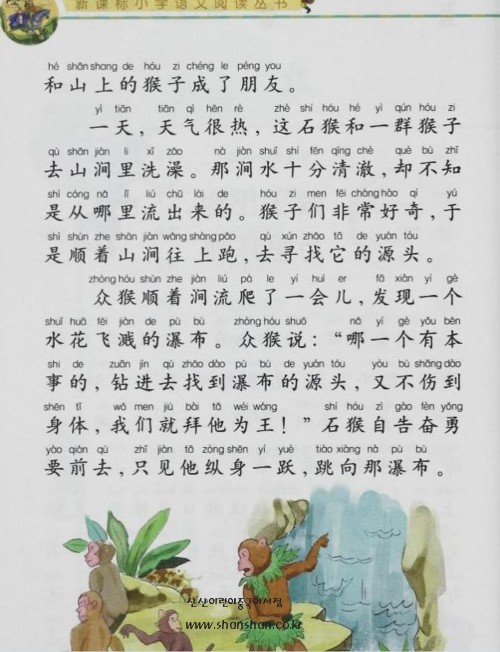 新课标小学语文阅读丛书
hé shān shang de hóu zi chéng le péng you
和山上的猴子成了朋友。
yì tiān tiān qì hěn rè zhè shí hóu hé yì qún hóu zi
一天，天气很热，这石猴和一群猴子
qù shān jiàn li xǐ zǎo nà jiàn shuǐ shí fēn qīng chè què bù zhī
去山涧里洗澡。那涧水十分清澈，却不知
shì cóng nǎ lǐ liú chū lái de hóu zi men fēi cháng hào qí yú
是从哪里流出来的。猴子们非常好奇，于
shì shùn zhe shān jiàn wǎng shàng pǎo qù xún zhǎo tā de yuán tóu
是顺着山涧往上跑，去寻找它的源头。
zhòng hóu shùn zhe jiàn liú pá le yí huìr fā xiàn yí gè
众猴顺着涧流爬了一会儿，发现一个
shuǐ huā fēi jiàn de pù bù zhòng hóu shuō nǎ yí gè yǒu běn
水花飞溅的瀑布。众猴说：“哪一个有本
shi de zuān jìn qù zhǎo dào pù bù de yuán tóu yòu bù shāng dào
事的，钻进去找到瀑布的源头，又不伤到
shēn tǐ wǒ men jiù bài tā wéi wáng shí hóu zì gào fèn yǒng
身体，我们就拜他为王！”石猴自告奋勇
yào qián qù zhǐ jiàn tā zòng shēn yí yuè tiào xiàng nà pù bù
要前去，只见他纵身一跃，跳向那瀑布。
산산어린이중국어서점
www.shanshan.co.kr